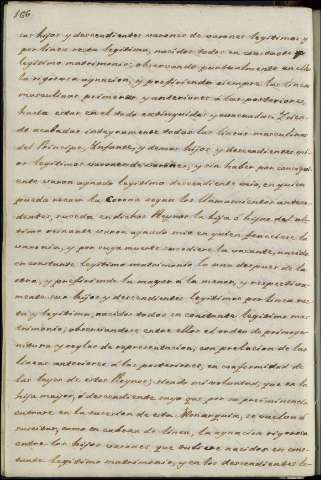 186
sus hijos y descendientes varones de varones legitimos y
por linea recta legitima, nacidos todos en constante
legitimo matrimonio; observando puntualmente en ellos
la rigorosa agnacion, y prefiriendo siempre las lineas
masculinas primeras y anteriores á las posteriores,
hasta estar en el todo extinguidas y evacuadas. Y sien-
do acabadas integramente todas las lineas masculinas
del Principe, Infante, y demas hijos y descendientes mi-
os legitimos varones de varones, y sin haber por consigui-
ente varon agnado legitimo descendiente mio, en quien
pueda recaer la Corona segun los llamamientos antece-
dentes, suceda en dichos Reynos la hija ó hijas del ul-
timo reinante varon agnado mio en quien feneciese la
varonia, y por cuya muerte sucediere la vacante, nacida
en constante legitimo matrimonio la una despues de la
otra, y prefiriendo la mayor á la menor, y respectiva-
mente sus hijos y descendientes legitimos por linea rec-
ta y legitima, nacidos todos en constante legitimo ma-
trimonio; observandose entre ellos el orden de primoge-
nitura y reglas de representacion, con prelacion de las
lineas anteriores á las posteriores, en conformidad de
las leyes de estos Reynos; siendo mi voluntad, que en la
hija mayor, ó descendiente suyo que por su premiencia
entrare en la sucesion de esta Monarquia, se vuelva á
suscitar, como en cabeza de linea, la agnacion rigorosa
entre los hijos varones que tubiere nacidos en cons-
tante legitimo matrimonio, y en los descendientes le-